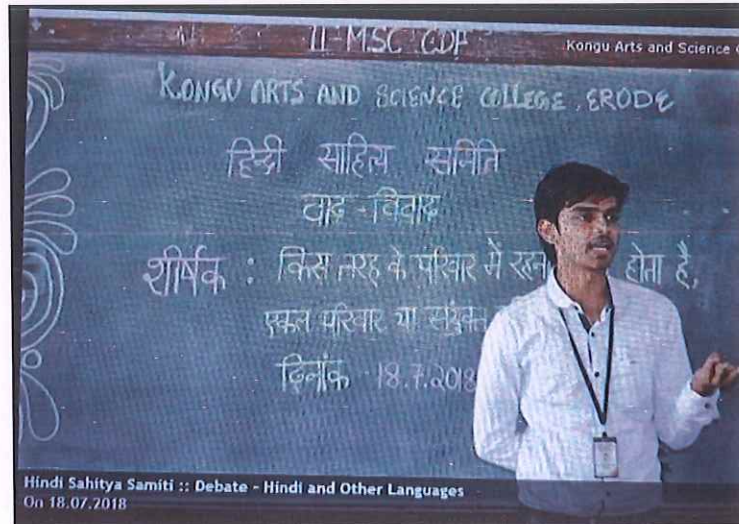 II-M.SC CDF
Kongu Arts and Science
KONGU ARTS AND SCIENCE COLLEGE, ERODE
हिन्दी साहित्य समिति
वाद-विवाद
शीर्षक : किस तरह के परिवार में होता है,
एकल परिवार या संयुक्त
दिनांक 18.7.2018
Hindi Sahitya Samiti :: Debate - Hindi and Other Languages
On 18.07.2018